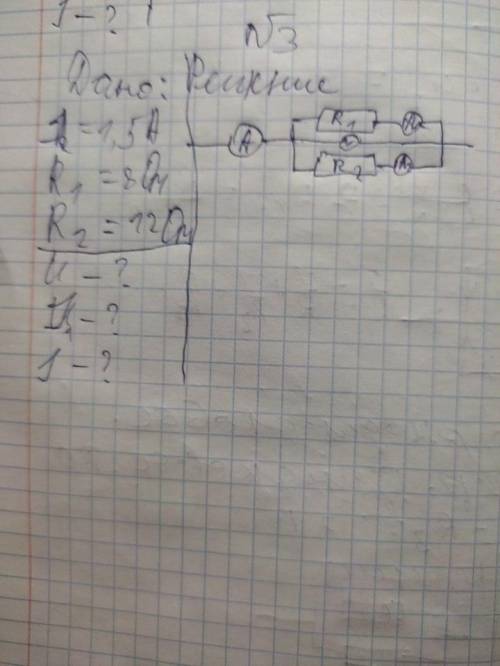 I - ?
№3
Дано: Решение
I₂ = 1,5 A
R₁ = 8 Ом
R₂ = 12 Ом
U - ?
I₁ - ?
I - ?
A
R₁ A₁
V
R₂ A₂